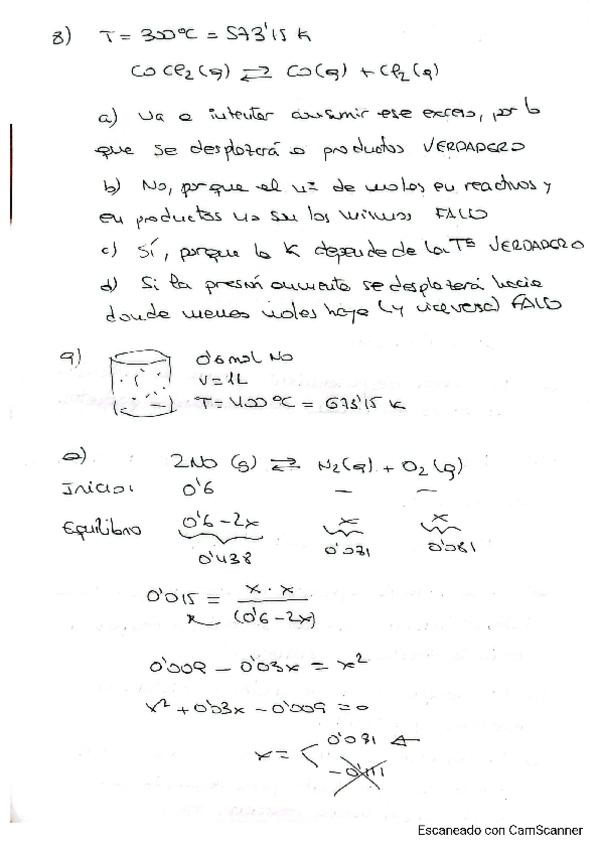 8) T = 300ºC = 573'15 K
COCl₂(g) ⇄ CO(g) + Cl₂(g)
a) Va a intentar consumir ese exceso, por lo
que se desplazará a productos VERDADERO
b) No, porque el nº de moles en reactivos y
en productos no son los mismos FALSO
c) Sí, porque la K depende de la Tª VERDADERO
d) Si la presión aumenta se desplazará hacia
donde menos moles haya (y viceversa) FALSO
9) 0'6 mol NO
V = 1L
T = 400ºC = 673'15 K
a) 2NO (g) ⇄ N₂(g) + O₂(g)
Inicio: 0'6 – –
Equilibrio 0'6 – 2x x x
0'438 0'081 0'081
0'015 = x · x / (0'6 – 2x)
K
0'009 – 0'03x = x²
x² + 0'03x – 0'009 = 0
x = 0'081
– 0'111
Escaneado con CamScanner